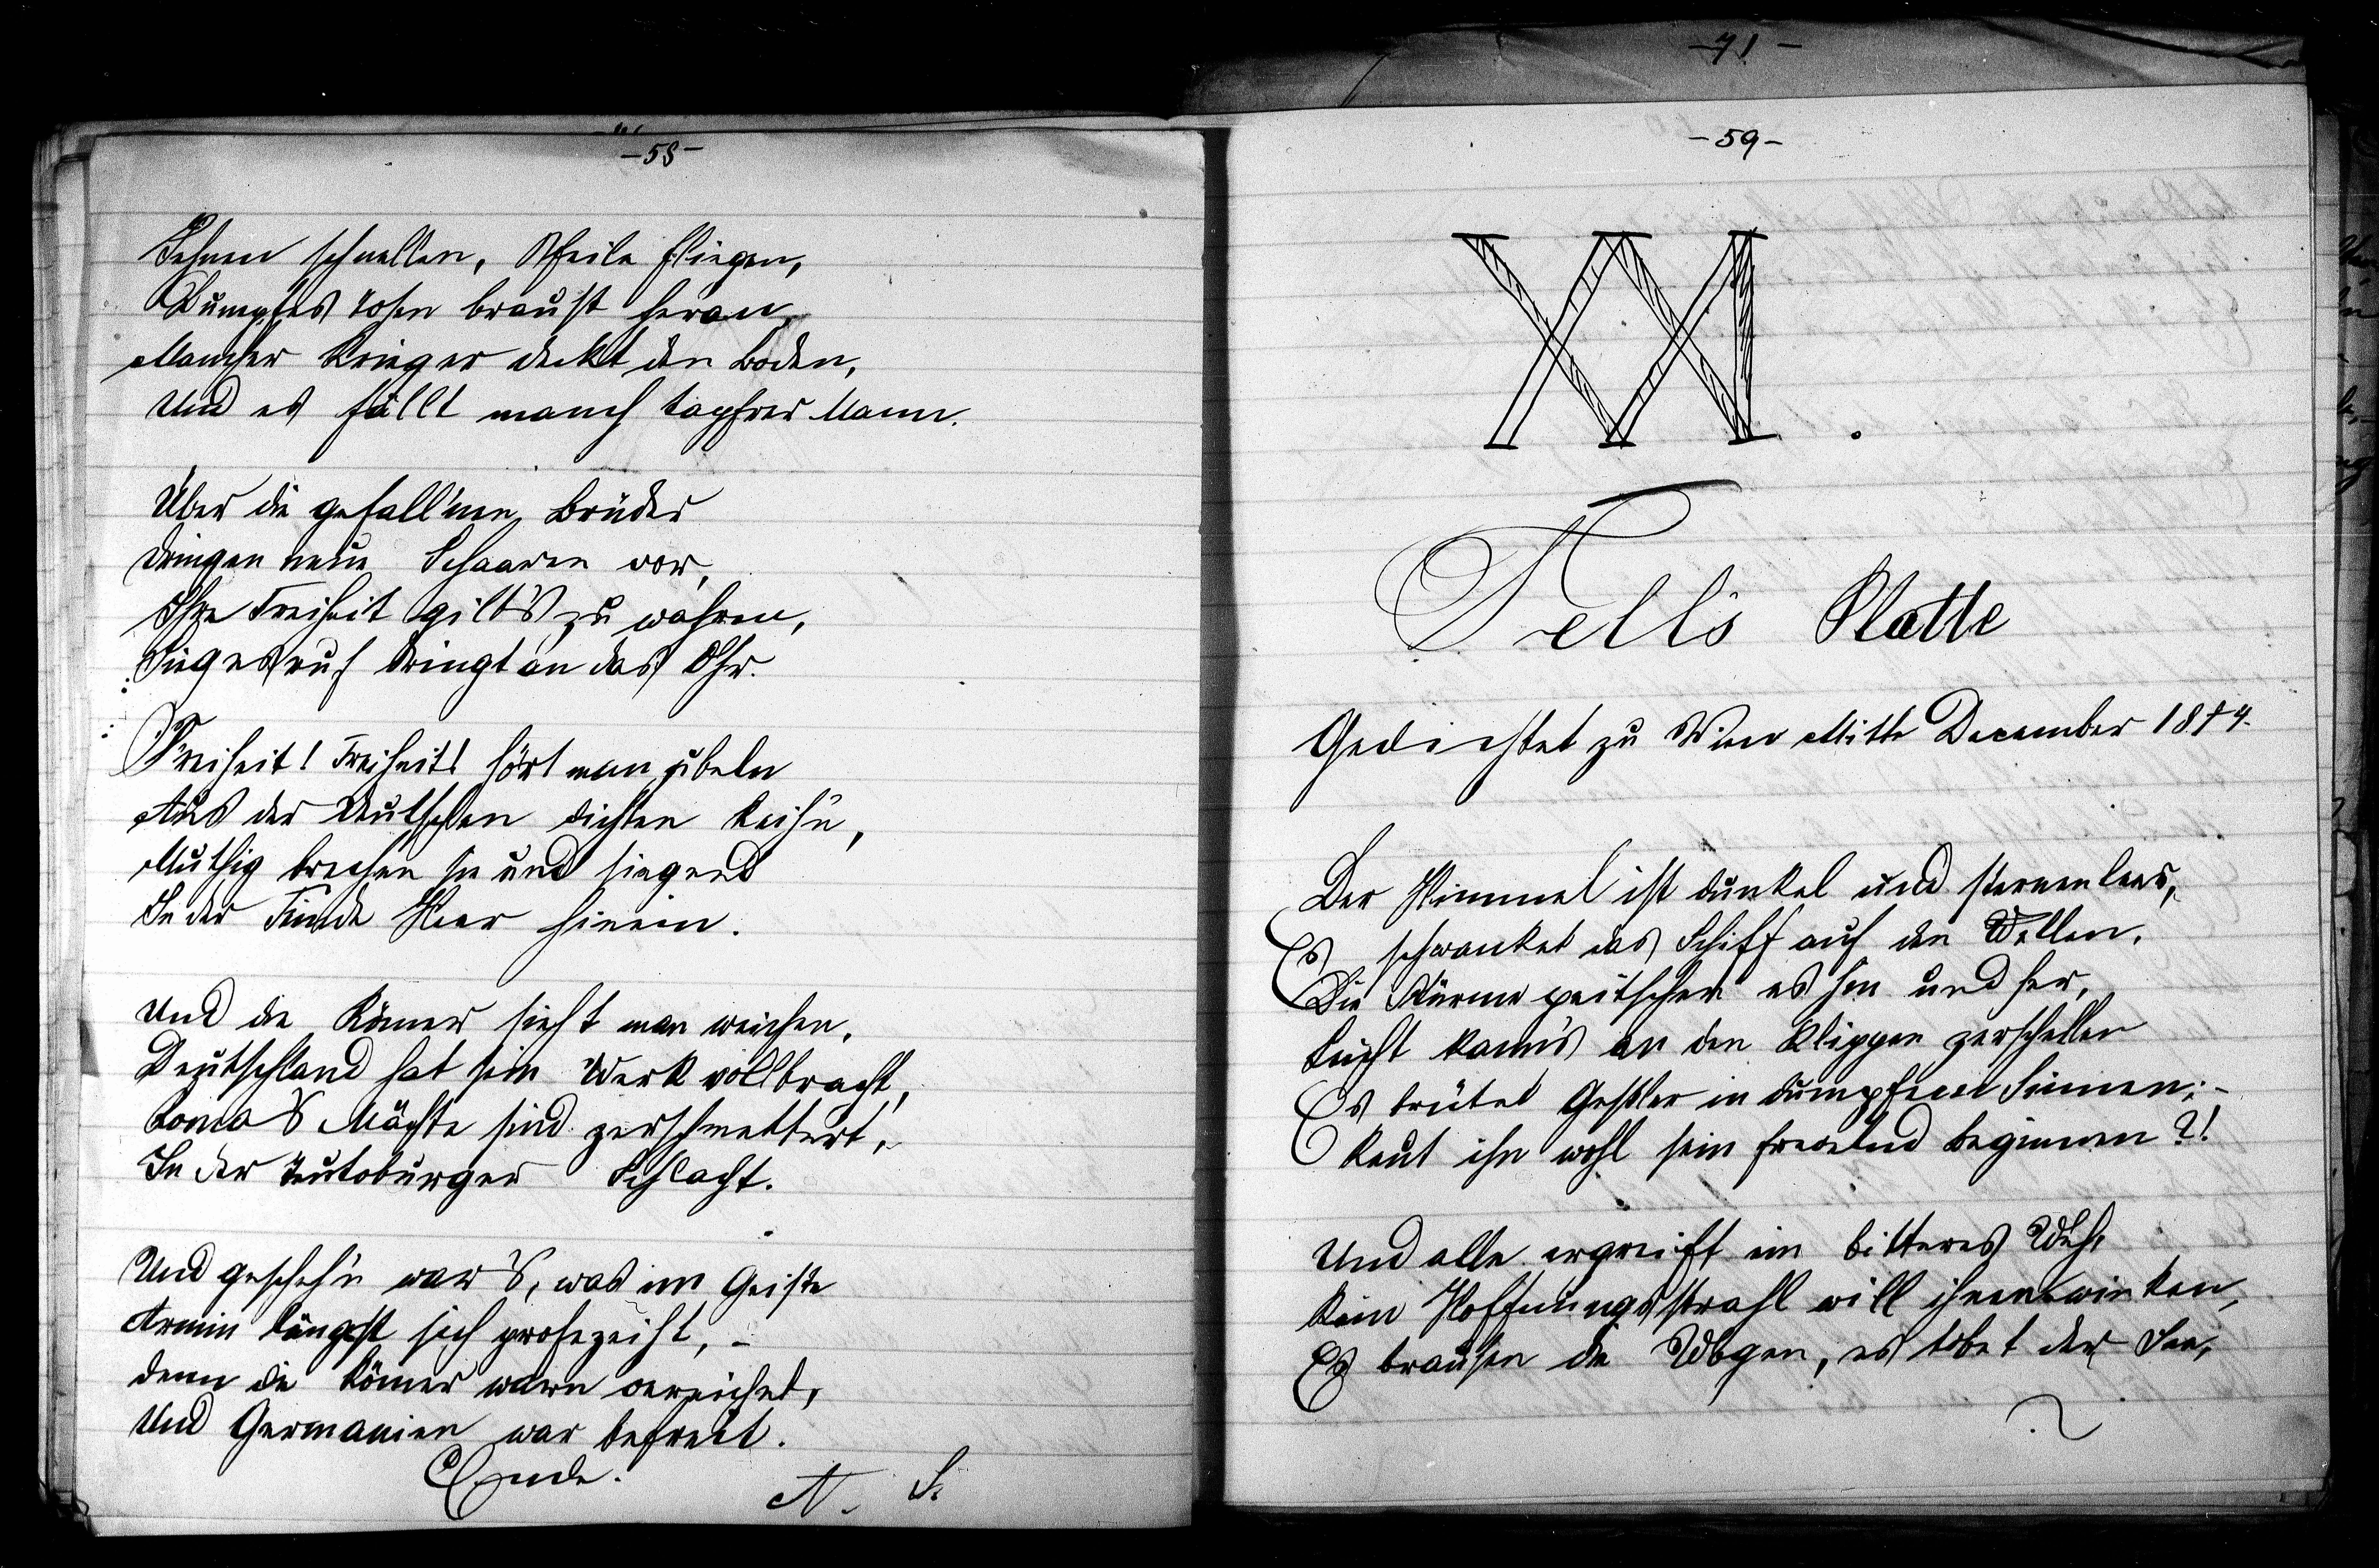 -58-
Sehnen schnellen, Pfeile fliegen,
Dumpfes Tosen braust heran,
Mancher Krieger deckt den Boden,
Und es fällt manch tapfrer Mann.
Über die gefall'nen Brüder
dringen neue Schaaren vor,
Ihre Freiheit gilt's zu wahren,
Siegesruf dringt an das Ohr.
Freiheit! Freiheit! hört man jubeln
Aus der Deutschen dichten Reih'n,
Muthig brechen sie und siegend
In der Feinde Heer hinein.
Und die Römer sieht man weichen.
Deutschland hat sein Werk vollbracht,
Roma's Mächte sind zerschmettert,
In der Teutoburger Schlacht.
Und gescheh'n war's, was im Geiste
Armin längst sich profezeiht, -
denn die Römer warn
Und Germanien war befreit.
Ende.
N. S.
-71-
-59-
XXI.
Tell's Platte
Gedichtet zu Wien Mitte December 1874.
Der Himmel ist dunkel und sternenleer,
Es schwanket das Schiff auf den Wellen.
Die Stürme peitschen es hin und her,
Leicht kann's an den Klippen zerschellen
Es brütet Gessler in dumpfem Sinnen; -
Reut ihn wohl sein frevelnd Beginnen?!
Und alle ergreift ein bitteres Weh,
Kein Hoffnungsstrahl will ihnen winken,
Es brausen die Wogen, es tobet der See,